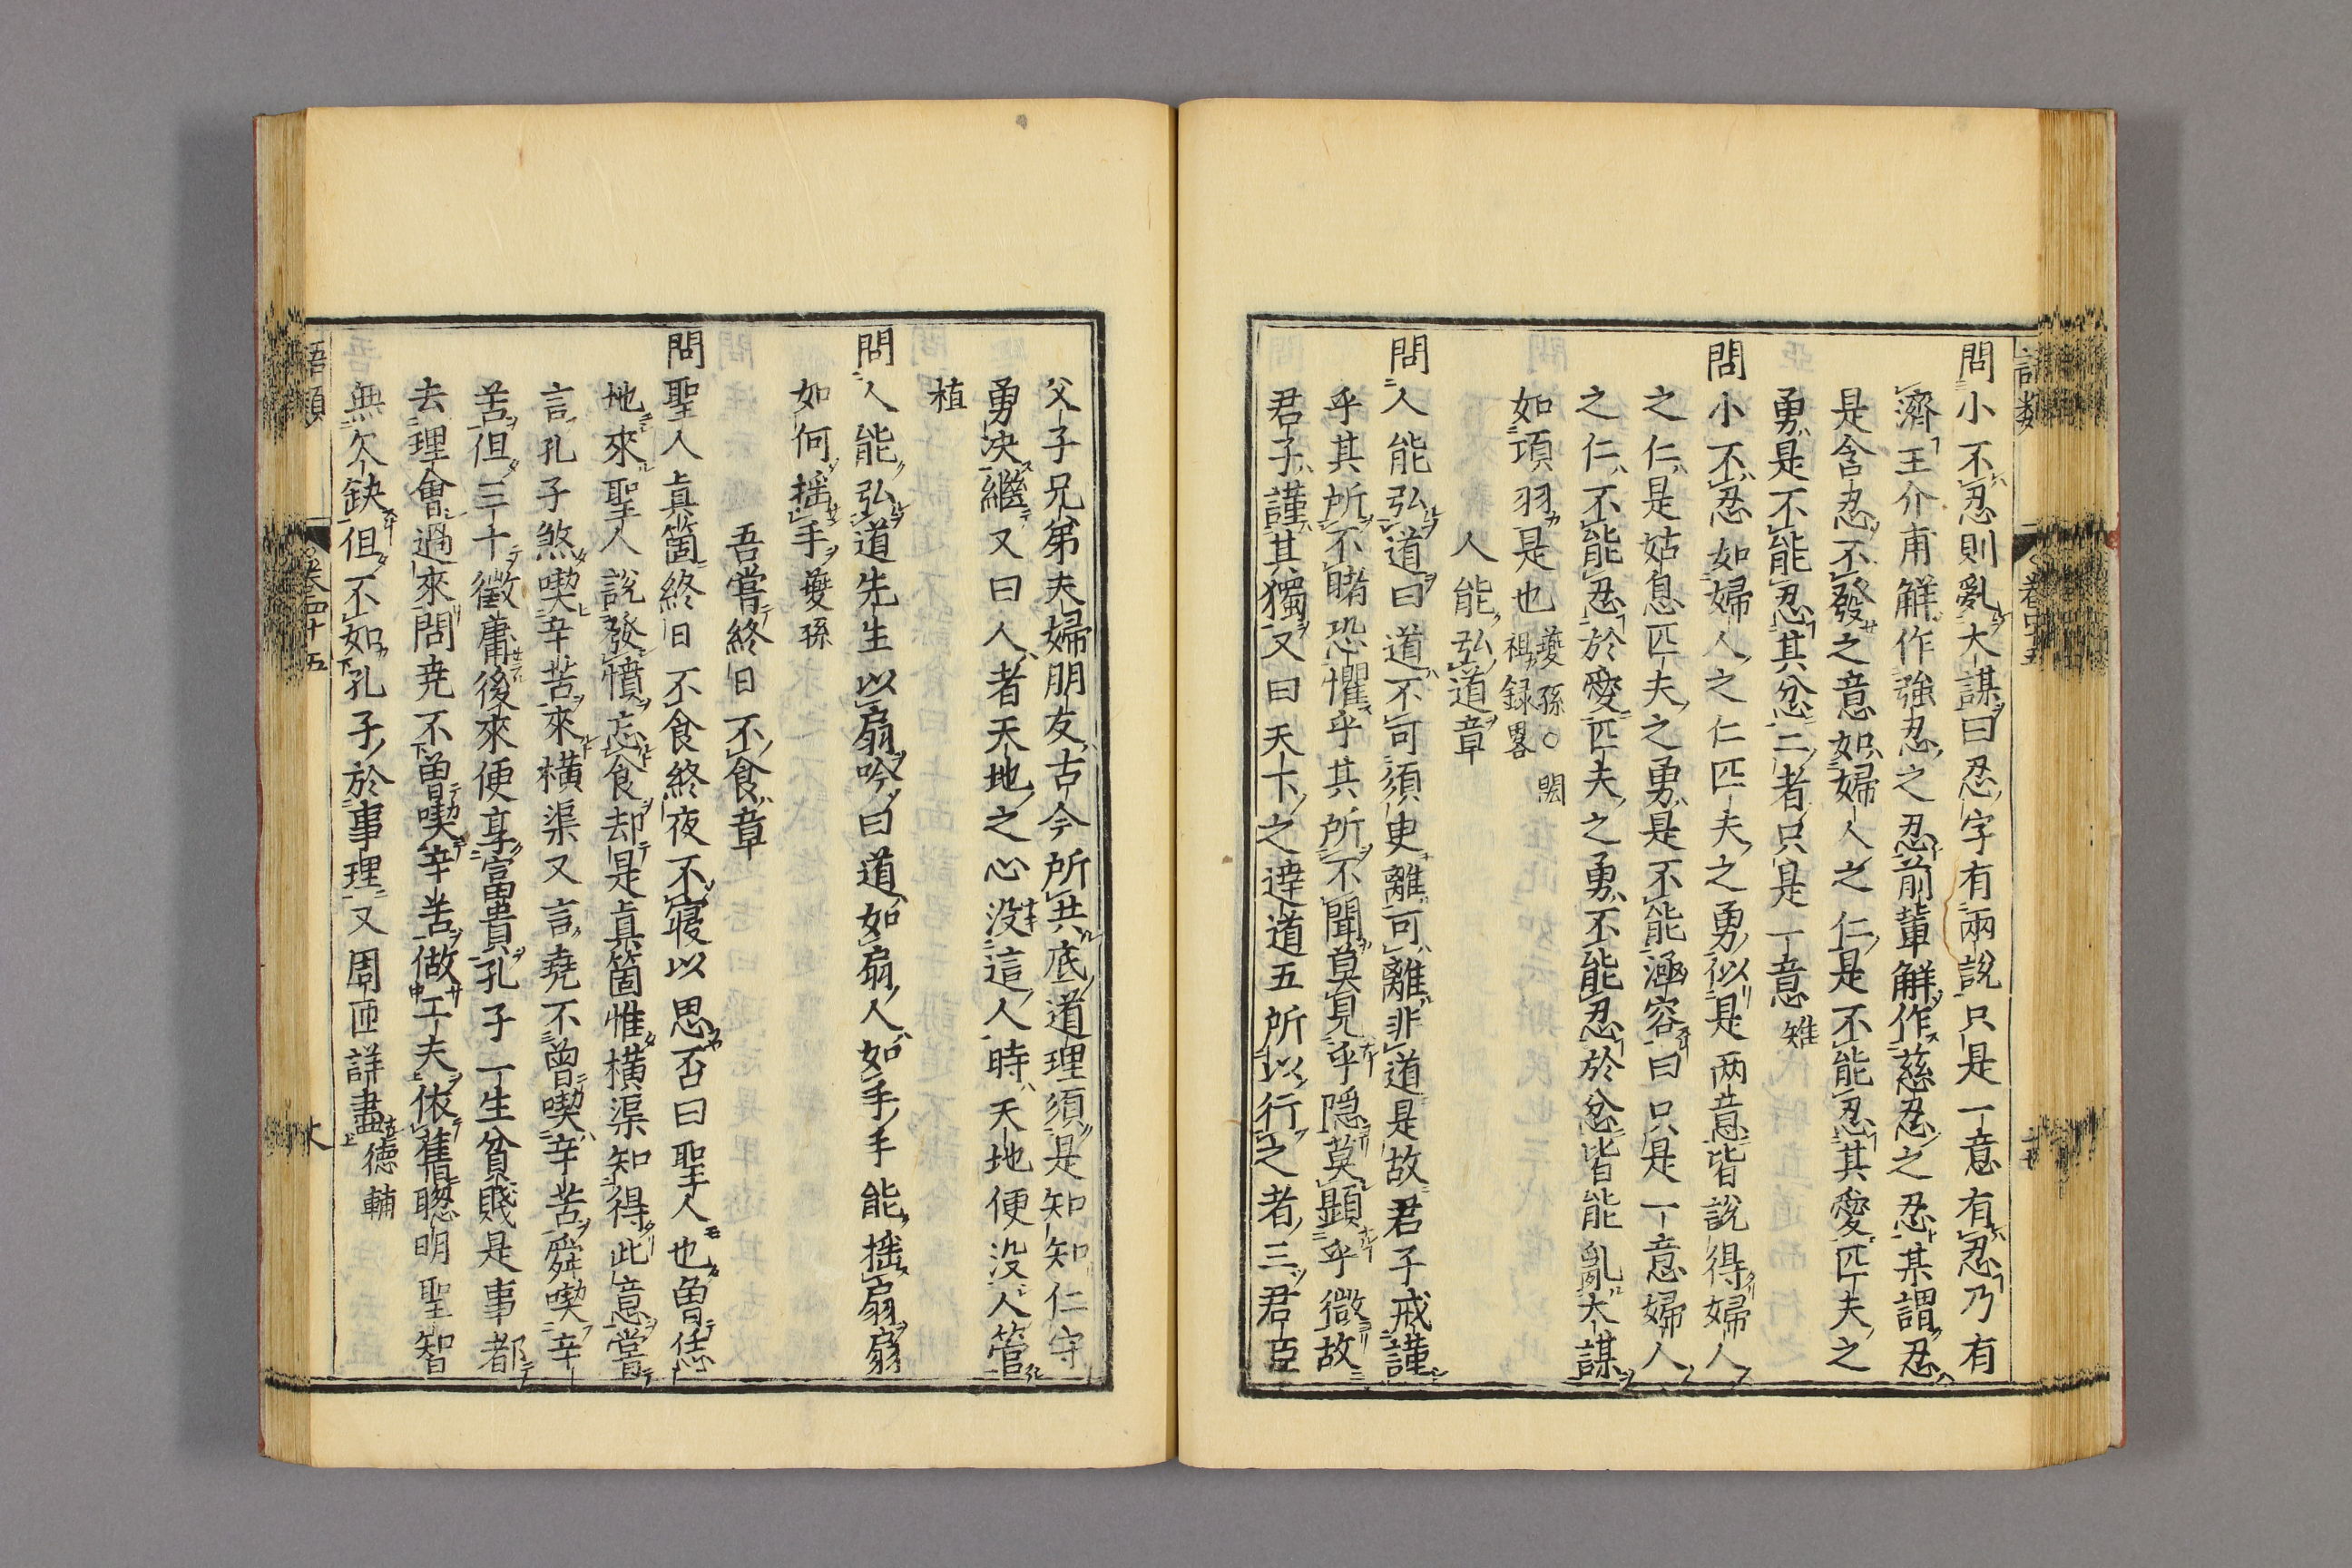 問小不忍則亂大謀曰忍字有兩說只是一意有忍乃有
濟王介甫解作強忍之忍前輩解作慈忍之忍某謂忍
是含忍不發之意如婦人之仁是不能忍其愛匹夫之
勇是不能忍其忿二者只是一意雉
問小不忍如婦人之仁匹夫之勇似是两意皆說得婦人
之仁是姑息匹夫之勇是不能涵容曰只是一意婦人
之仁不能忍於愛匹夫之勇不能忍於忿皆能亂大謀
如項羽是也夔孫○閎祖錄畧
人能弘道章
問人能弘道曰道不可須臾離可離非道是故君子戒謹
乎其所不睹恐懼乎其所不聞莫見乎隠莫顕乎微故
君子謹其獨又曰天下之達道五所以行之者三君臣
父子兄弟夫婦朋友古今所共底道理須是知知仁守
勇决繼又曰人者天地之心没這人時天地便没人管
植
問人能弘道先生以扇吟曰道如扇人如手手能揺扇扇
如何揺手夔孫
吾嘗終日不食章
問聖人真箇終日不食終夜不寝以思否曰聖人也曽恁
地來聖人說發憤忘食却是真箇惟横渠知得此意嘗
言孔子煞喫辛苦來横渠又言堯不曽喫辛苦舜喫辛
苦但三十徵庸後來便享富貴孔子一生貧賤是事都
去理會過來問尭不曽喫辛苦做工夫依舊聦明聖智
無欠缺但不如孔子於事理又周匝詳盡德輔
語類 卷四十五